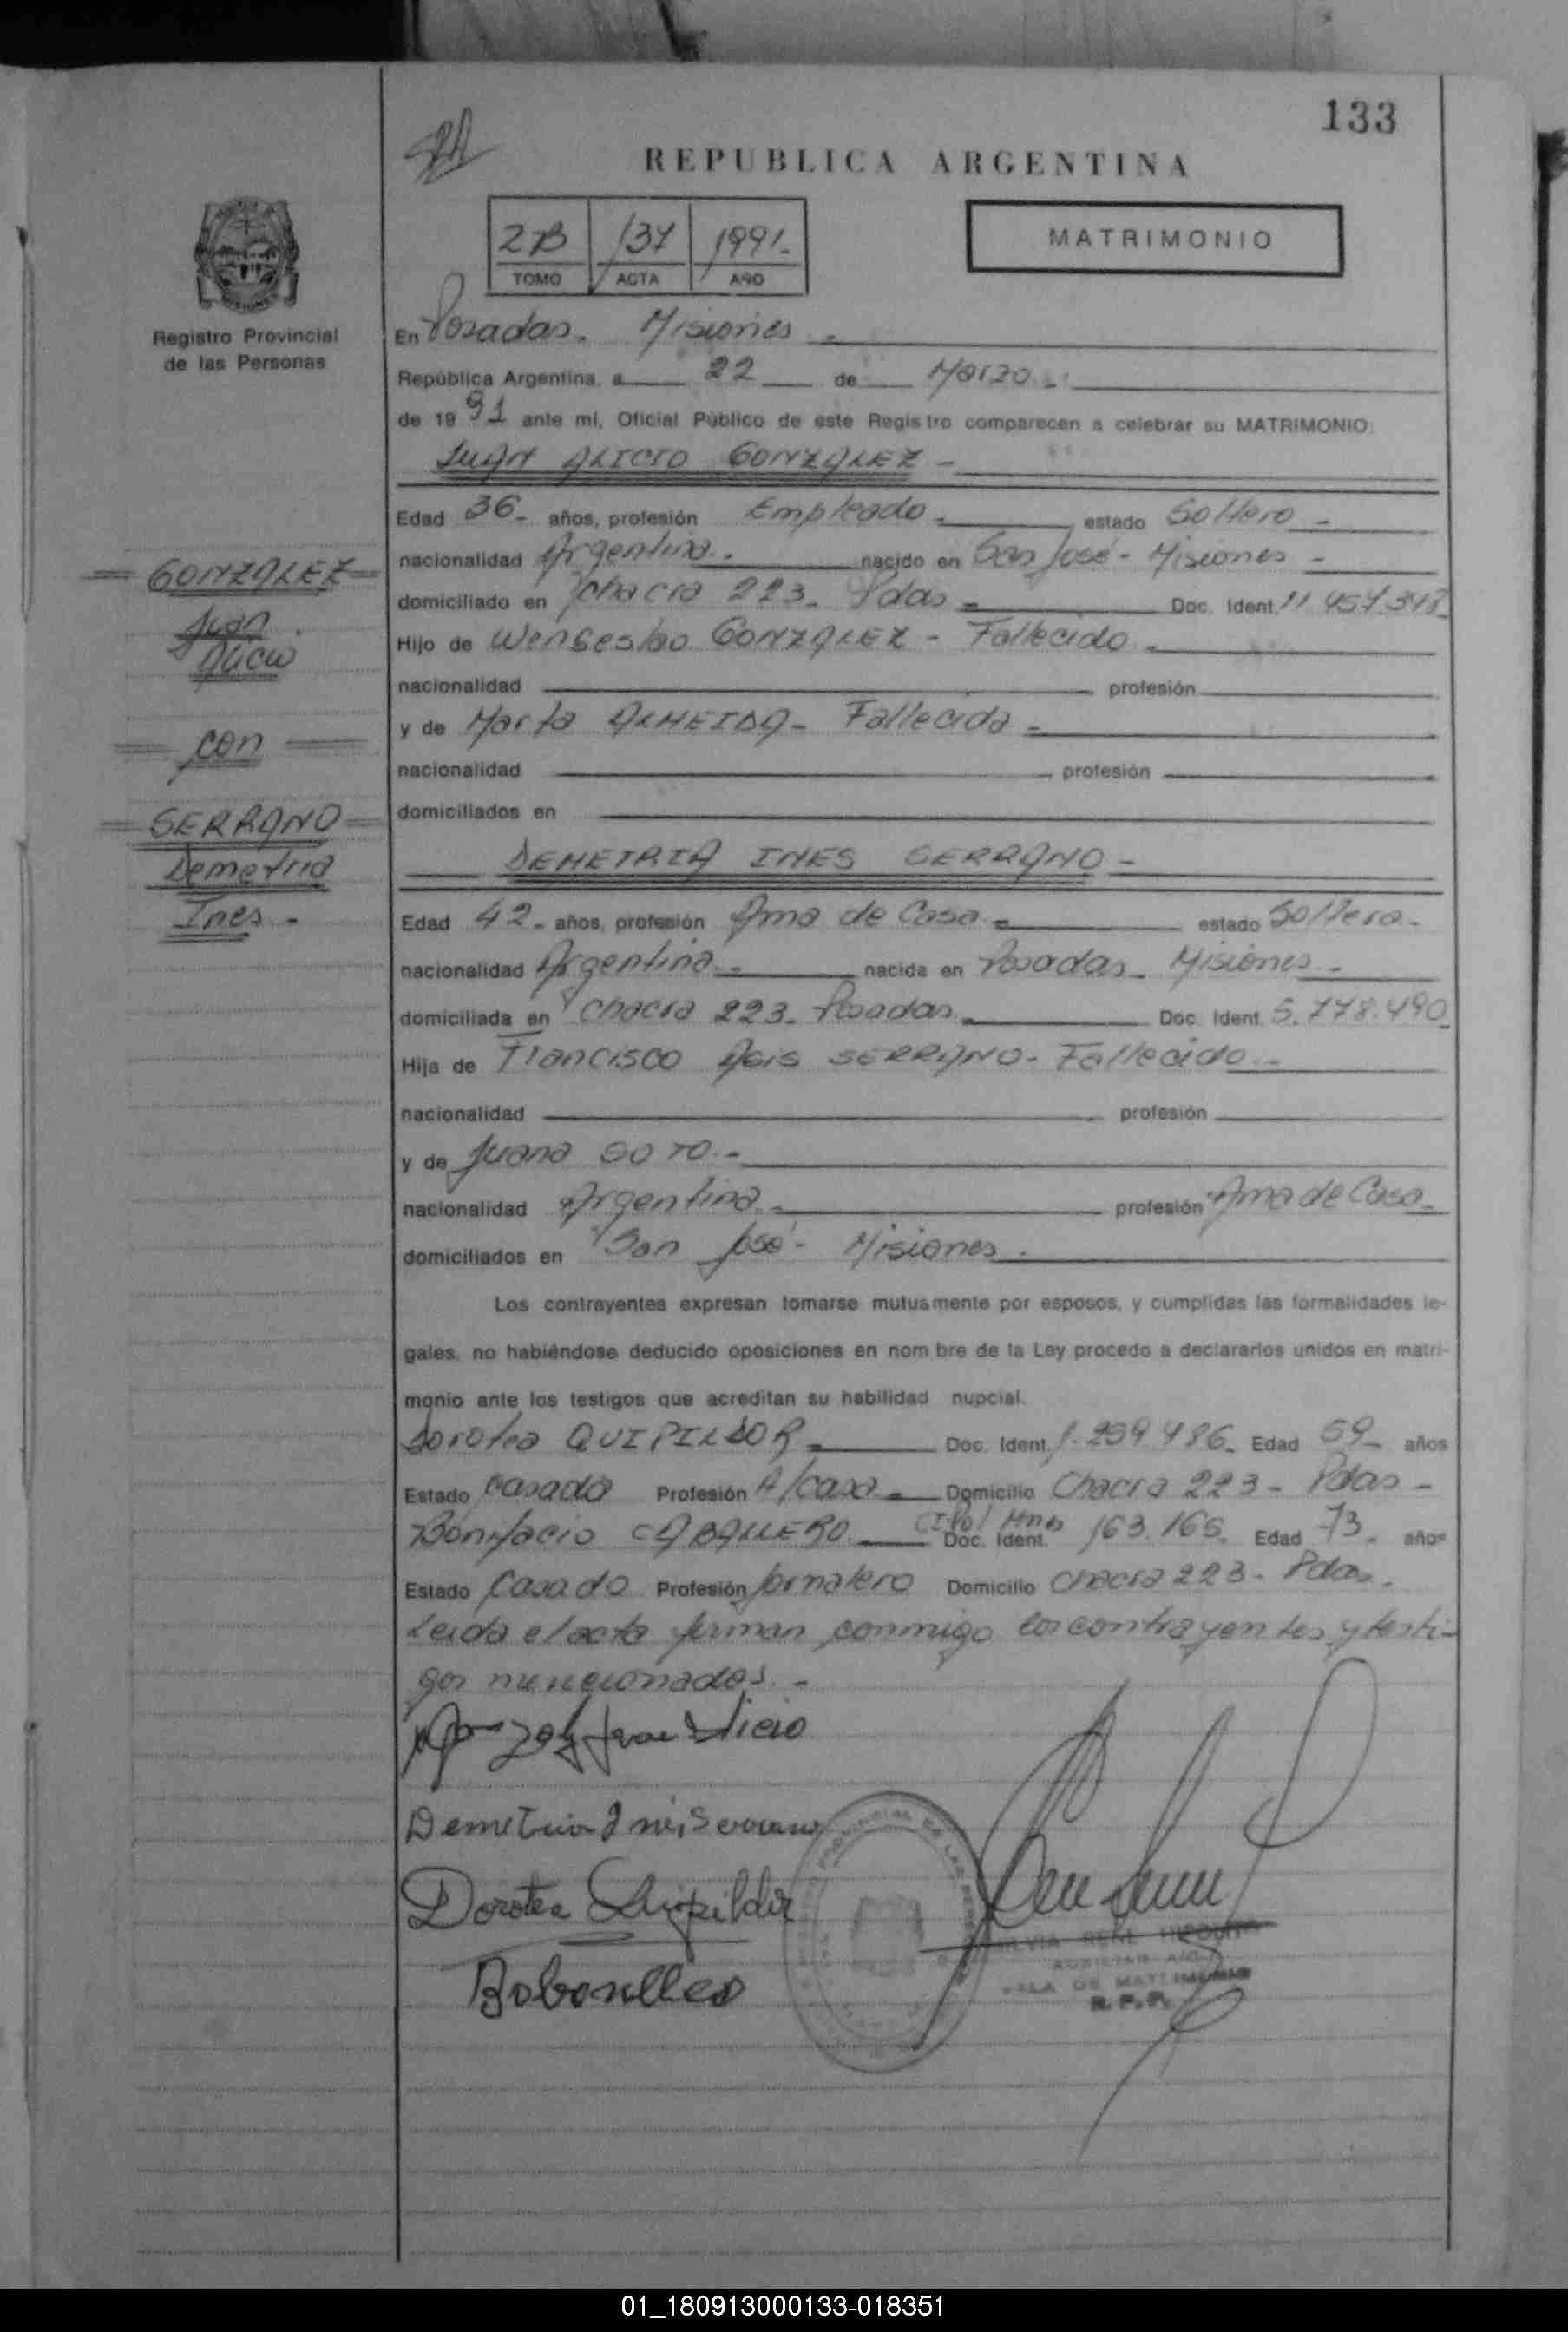 133
REPUBLICA ARGENTINA
2B 137 1991.-
TOMO ACTA AÑO
MATRIMONIO
Registro Provincial
de las Personas
En Posadas. Misiones.-
República Argentina, a 22 de Marzo.-
de 1991 ante mi, Oficial Público de este Registro comparecen a celebrar su MATRIMONIO:
JUAN ALICIO GONZALEZ-
Edad 36- años, profesión Empleado.- estado Soltero-
nacionalidad Argentina.- nacido en San José- Misiones-
domiciliado en chacra 223. Pdas- Doc. Ident.
Hijo de Wenseslao GONZALEZ- Fallecido.-
nacionalidad profesión
y de Marta ALMEIDA- Fallecida-
nacionalidad profesión
domiciliados en
DEMETRIA INES SERRANO-
Edad 42- años, profesión Ama de Casa.- estado Soltera-
nacionalidad Argentina.- nacida en Posadas- Misiones-
domiciliada en chacra 223. Posadas.- Doc. Ident. 5.778.490
Hija de Francisco SERRANO- Fallecido.-
nacionalidad profesión
y de Juana SOTO.-
nacionalidad Argentina.- profesión Ama de Casa-
domiciliados en San José- Misiones.
Los contrayentes expresan tomarse mutuamente por esposos, y cumplidas las formalidades le-
gales, no habiéndose deducido oposiciones en nombre de la Ley procedo a declararlos unidos en matri-
monio ante los testigos que acreditan su habilidad nupcial.
Dorotea QUIPILDOR- Doc. Ident. Edad 59- años
Estado Casado Profesión A/casa- Domicilio Chacra 223- Pdas-
Bonifacio CABALLERO.- Doc. Ident. 163.166. Edad 73. años
Estado Casado Profesión Jornalero Domicilio chacra 223- Pdas.
Leida el acta firman conmigo los contrayentes y testi-
gos mencionados.-
Juan Alicio
Demetria Ines Serrano
Dorotea Quipildor
GONZALEZ
Juan
Alicio
con
SERRANO
Demetria
Ines.-
R.P.P.
01_180913000133-018351